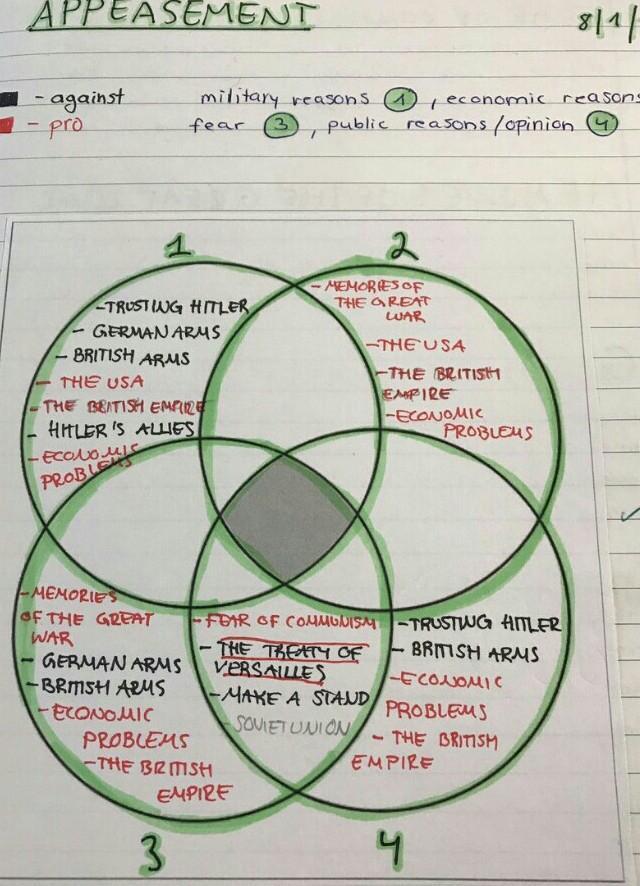 APPEASEMENT
8/1/
- against military reasons 1, economic reasons
- pro fear 3, public reasons/opinion 4
1
2
- TRUSTING HITLER
- GERMAN ARMS
- BRITISH ARMS
- THE USA
- THE BRITISH EMPIRE
- HITLER'S ALLIES
- ECONOMIC
PROBLEMS
- MEMORIES OF
THE GREAT
WAR
- THE USA
- THE BRITISH
EMPIRE
- ECONOMIC
PROBLEMS
- MEMORIES
OF THE GREAT
WAR
- GERMAN ARMS
- BRITISH ARMS
- ECONOMIC
PROBLEMS
- THE BRITISH
EMPIRE
- FEAR OF COMMUNISM
- THE TREATY OF
VERSAILLES
- MAKE A STAND
- SOVIET UNION
- TRUSTING HITLER
- BRITISH ARMS
- ECONOMIC
PROBLEMS
- THE BRITISH
EMPIRE
3
4